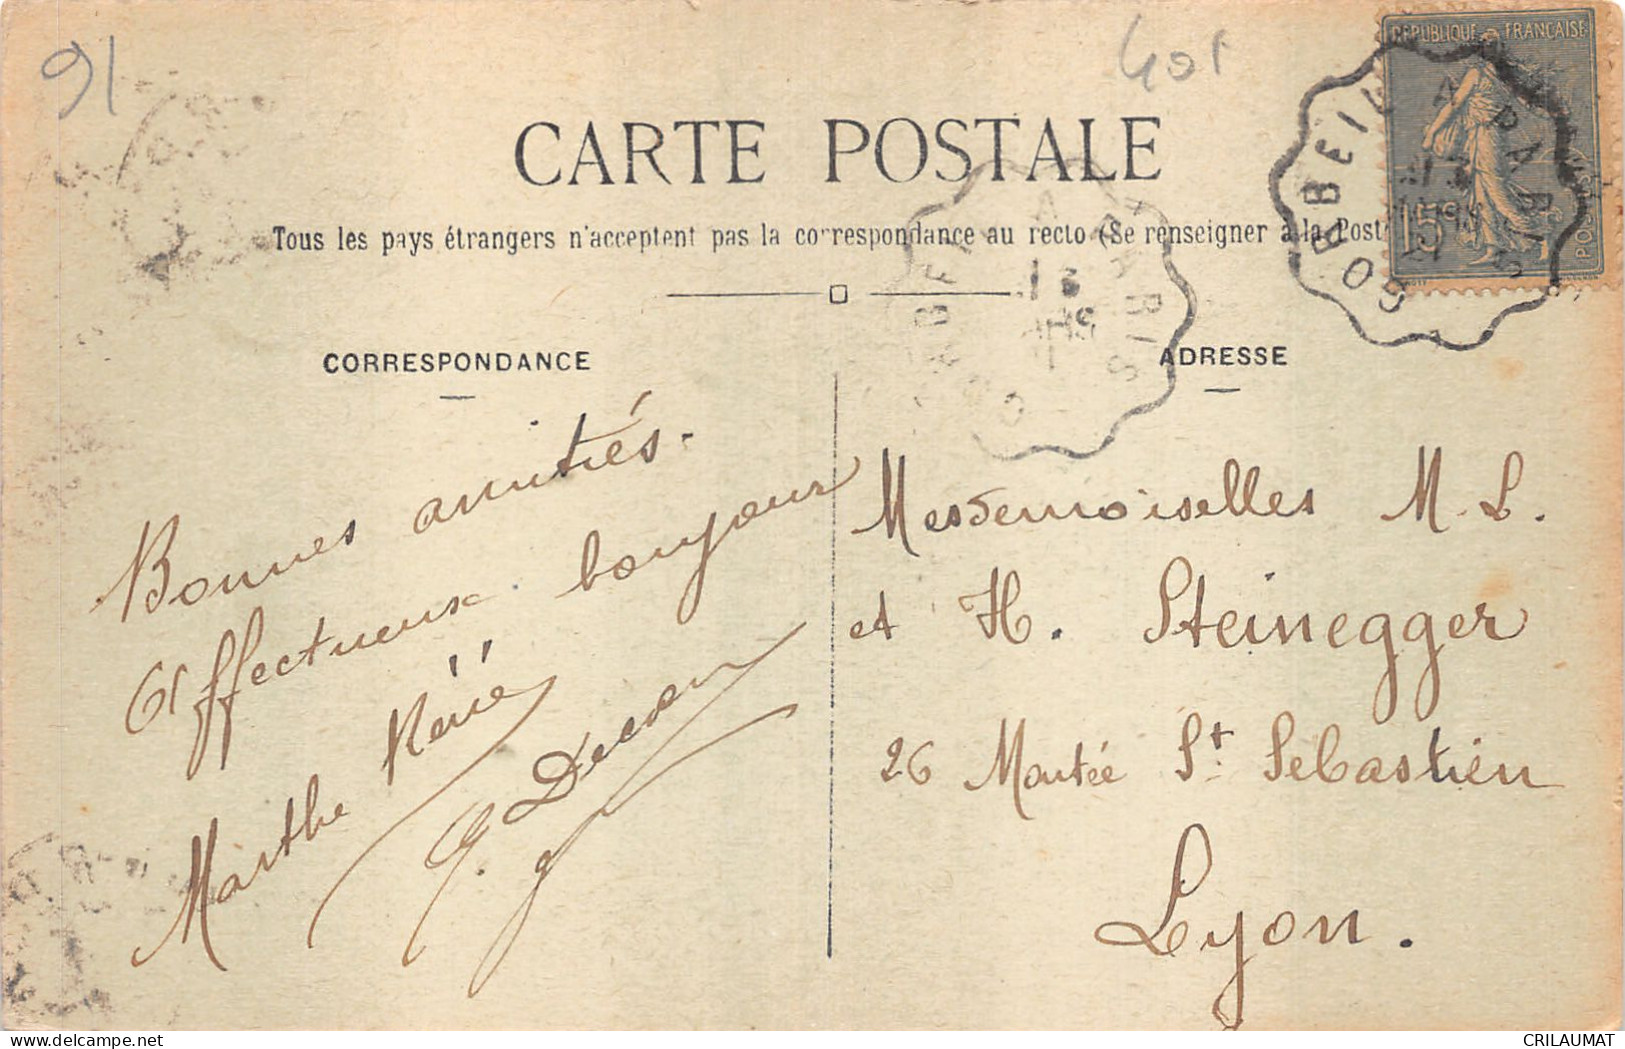 91
401
RÉPUBLIQUE FRANÇAISE
15c
POSTES
CORBEIL A PARIS
CARTE POSTALE
Tous les pays étrangers n'acceptent pas la correspondance au recto (Se renseigner à la Post
CORRESPONDANCE
Bonnes amitiés.
Affectueux bonjour
Marthe René
ADRESSE
Messemoiselles M. L.
et H. Steinegger
26 Montée St. Sebastien
Lyon.
CRILAUMAT